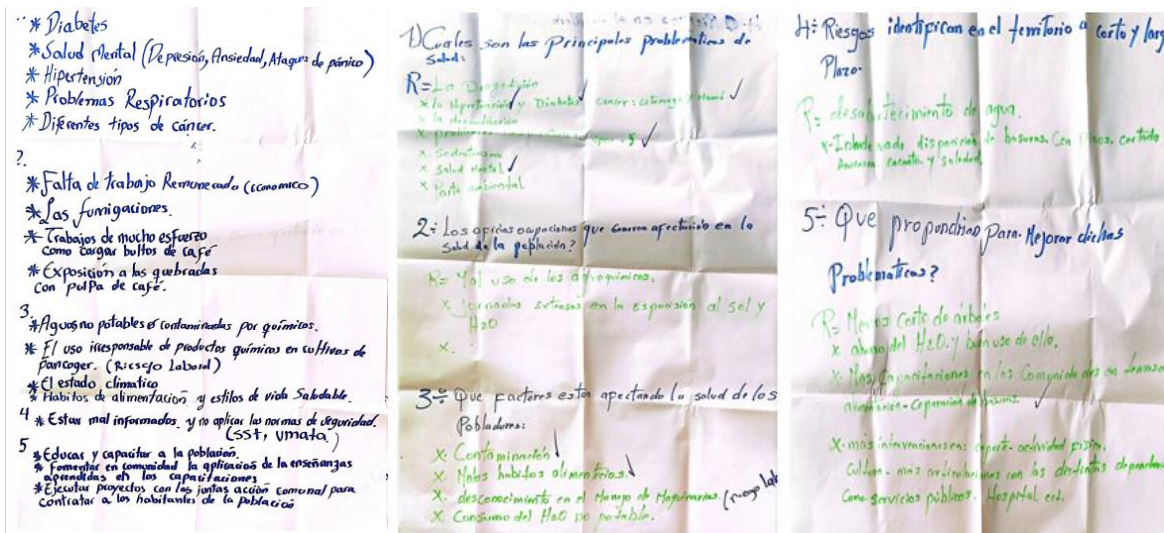 * Diabetes
* Salud Mental (Depresión, Ansiedad, Ataques de pánico)
* Hipertensión
* Problemas Respiratorios
* Diferentes tipos de cáncer.
?.
* Falta de trabajo Remunerado (economico)
* Las fumigaciones.
* Trabajos de mucho esfuerzo
como cargar bultos de café
* Exposición a las quebradas
con pulpa de café.
3.
* Aguas no potables o contaminadas por químicos.
* El uso irresponsable de productos químicos en cultivos de
pancoger. (Riesgo Laboral)
* El estado climatico
* Habitos de alimentación y estilos de vida Saludable.
4 * Estar mal informados y no aplicar las normas de seguridad.
(SST, UMATA)
5 * Educar y capacitar a la población.
* Fomentar en comunidad la aplicación de la enseñanzas
aprendidas en las capacitaciones
* Ejecutar proyectos con las juntas acción comunal para
contratar a los habitantes de la población
1) Cuales son las Principales problematicas de
Salud:
R= La
x la Hipertensión y Diabetes cancer: estomago y
x la
x
x
x Salud mental
x Parte ambiental
2: Los oficios ocupaciones que afectación en la
Salud de la población?
R= Mal uso de los agroquimicos,
x Jornadas en la al sol y
H2O
x.
3: Que factores estan afectando la salud de los
Pobladores:
x. Contaminación
x. Malos habitos alimentrios.
x. desconocimiento en el Manejo de Maquinarias. (riesgo lab
x. Consumo del H2O no potable.
4: Riesgos identifican en el territorio a corto y larg
Plazo.
R= de agua.
x- disposición de basuras. Con
y
5: Que propondrian Para Mejorar dichas
Problematicas?
R= Menos corte de árboles
x. del H2O. y buen uso de ello.
x. Mas Capacitaciones en las Comunidades en
alimentación - de basuras.
x- más - actividad
más con las distintas
Como servicios públicos. Hospital ect.